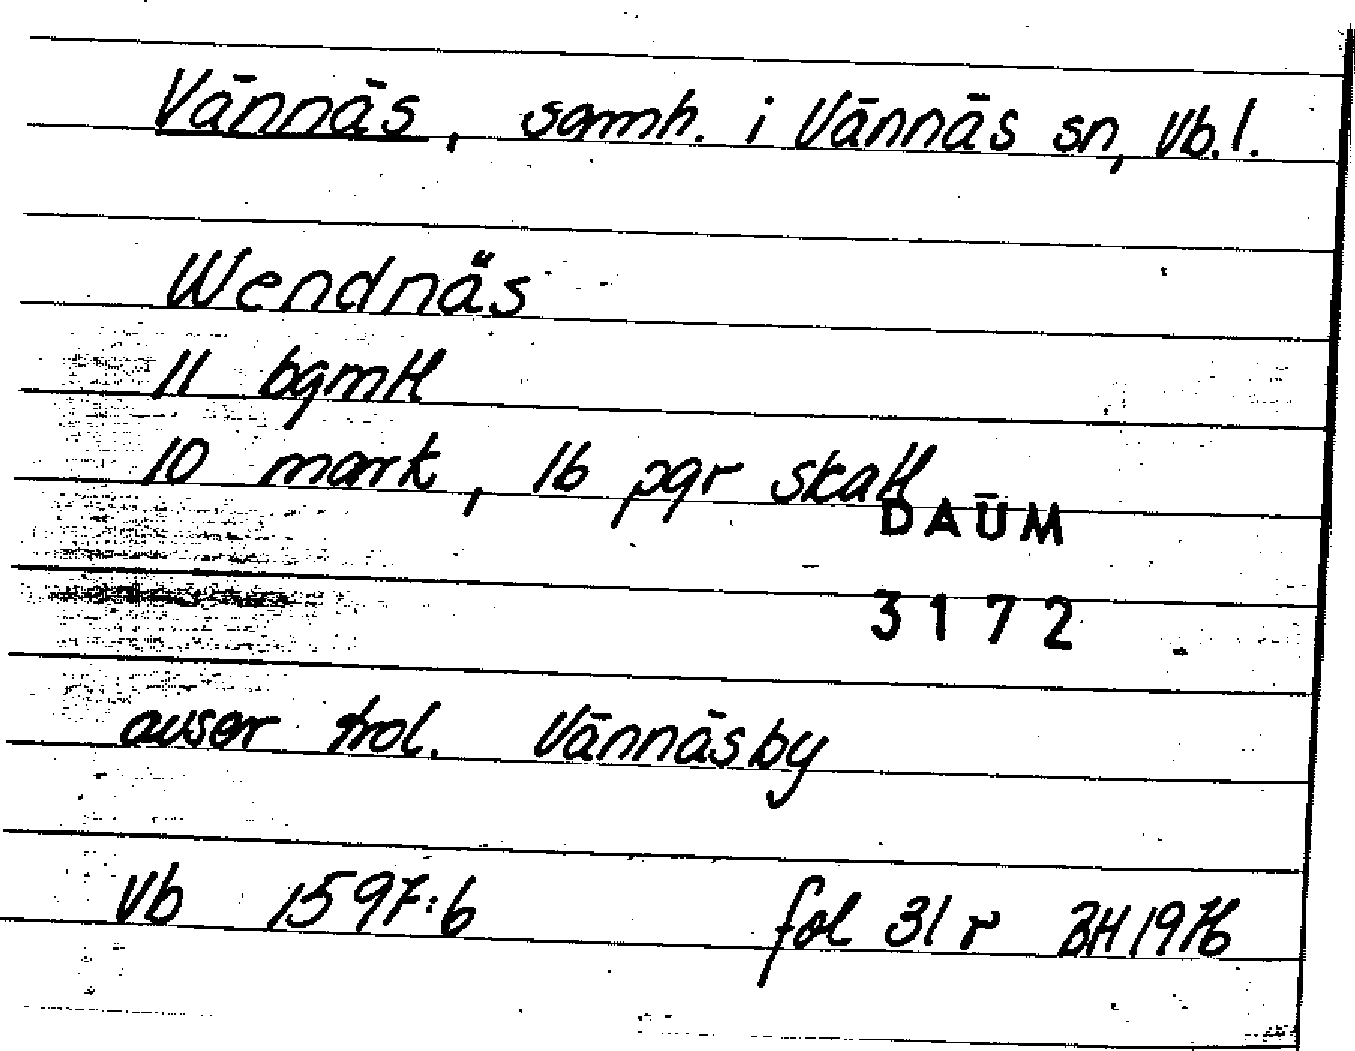 Vännäs, samh. i Vännäs sn, Vb.l.
Wendnäs
11 bgmtl
10 mark, 16 pgr skatt
DAUM
3172
avser trol. Vännäsby
Vb 1597:6 fol 31 r BH 1976